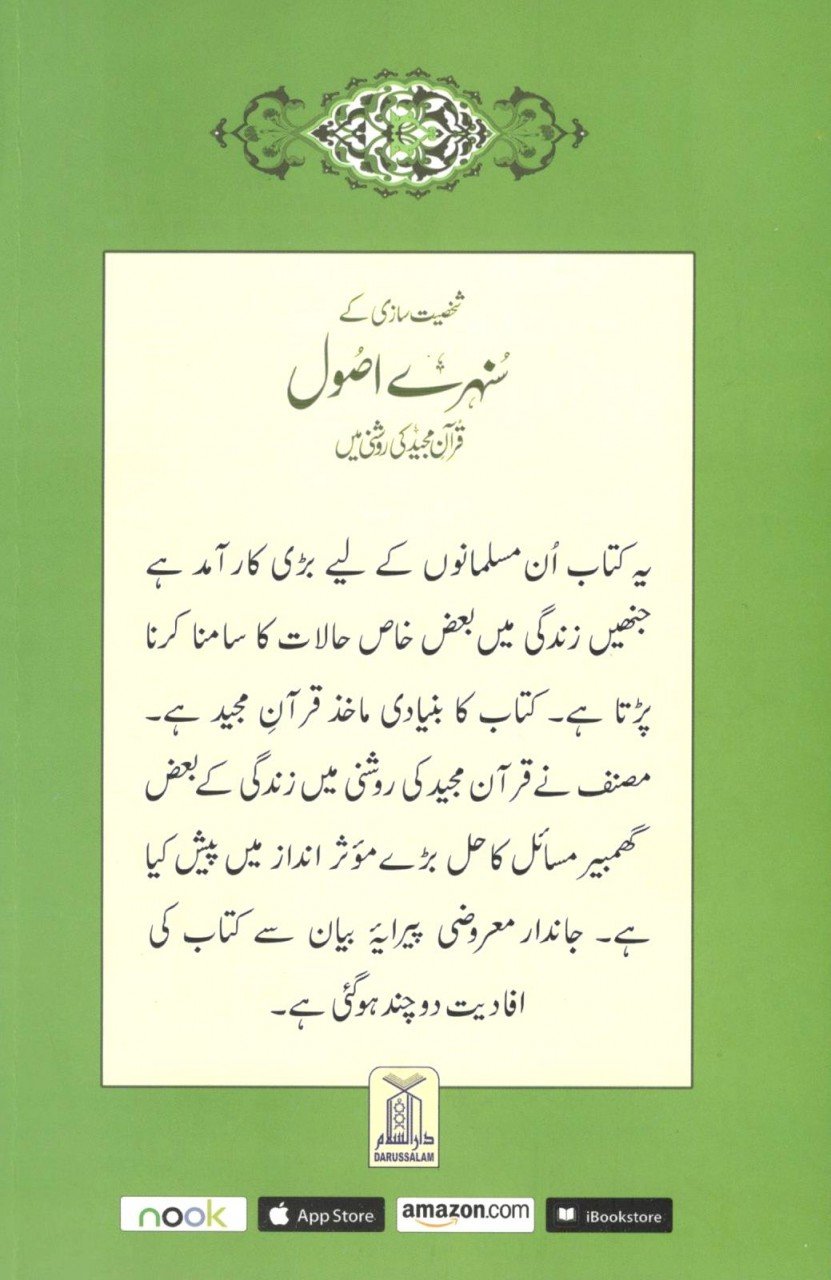 شخصیت سازی کے
سُنہرے اصُول
قرآنِ مجید کی روشنی میں
یہ کتاب اُن مسلمانوں کے لیے بڑی کارآمد ہے
جنھیں زندگی میں بعض خاص حالات کا سامنا کرنا
پڑتا ہے۔ کتاب کا بنیادی ماخذ قرآنِ مجید ہے۔
مصنف نے قرآن مجید کی روشنی میں زندگی کے بعض
گھمبیر مسائل کا حل بڑے مؤثر انداز میں پیش کیا
ہے۔ جاندار معروضی پیرایۂ بیان سے کتاب کی
افادیت دو چند ہو گئی ہے۔
دارالسلام
DARUSSALAM
nook App Store amazon.com iBookstore